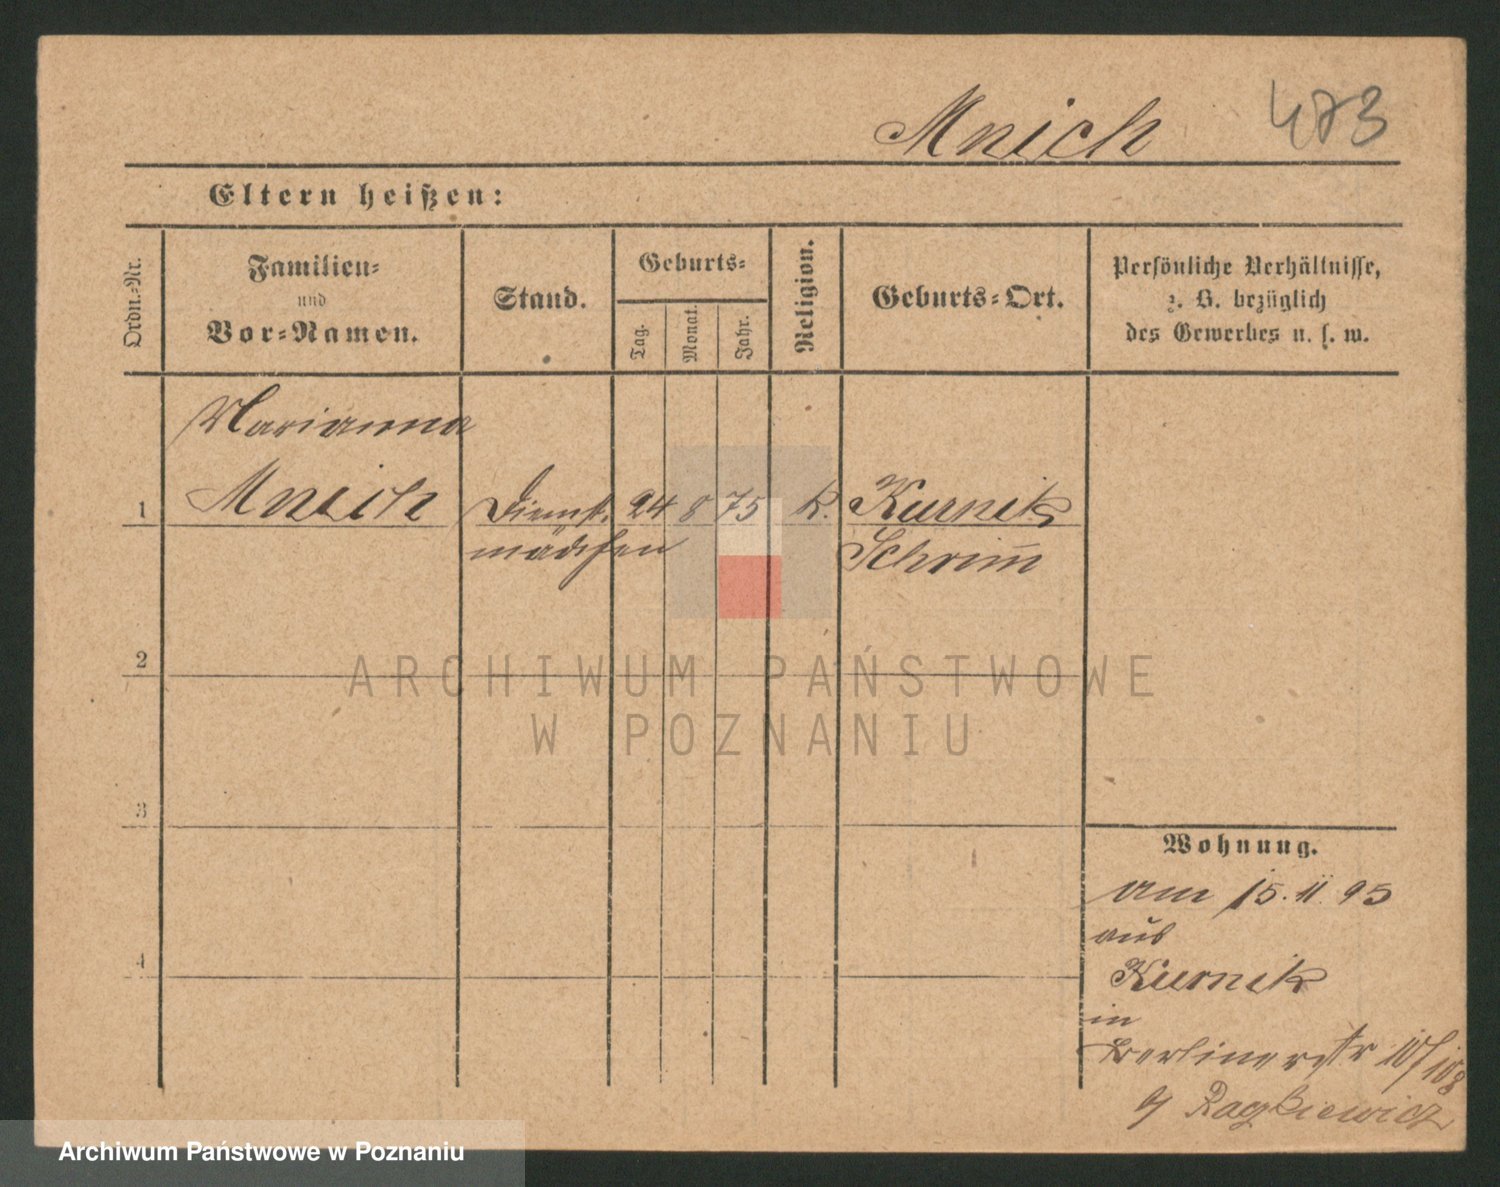 Mnich 473
Eltern heißen:
Ordn.-Nr.
Familien-
und
Vor-Namen.
Stand.
Geburts-
Tag.
Monat.
Jahr.
Religion.
Geburts-Ort.
Persönliche Verhältnisse,
z. B. bezüglich
des Gewerbes u. s. w.
Marianna
1 Mnich Dienst. 24 8 75 k. Kurnik
mädchen Schrim̅
2
3
4
Wohnung.
am 15. 11. 95
aus
Kurnik
in
Berlinerstr 10/
ARCHIWUM PAŃSTWOWE
W POZNANIU
Archiwum Państwowe w Poznaniu